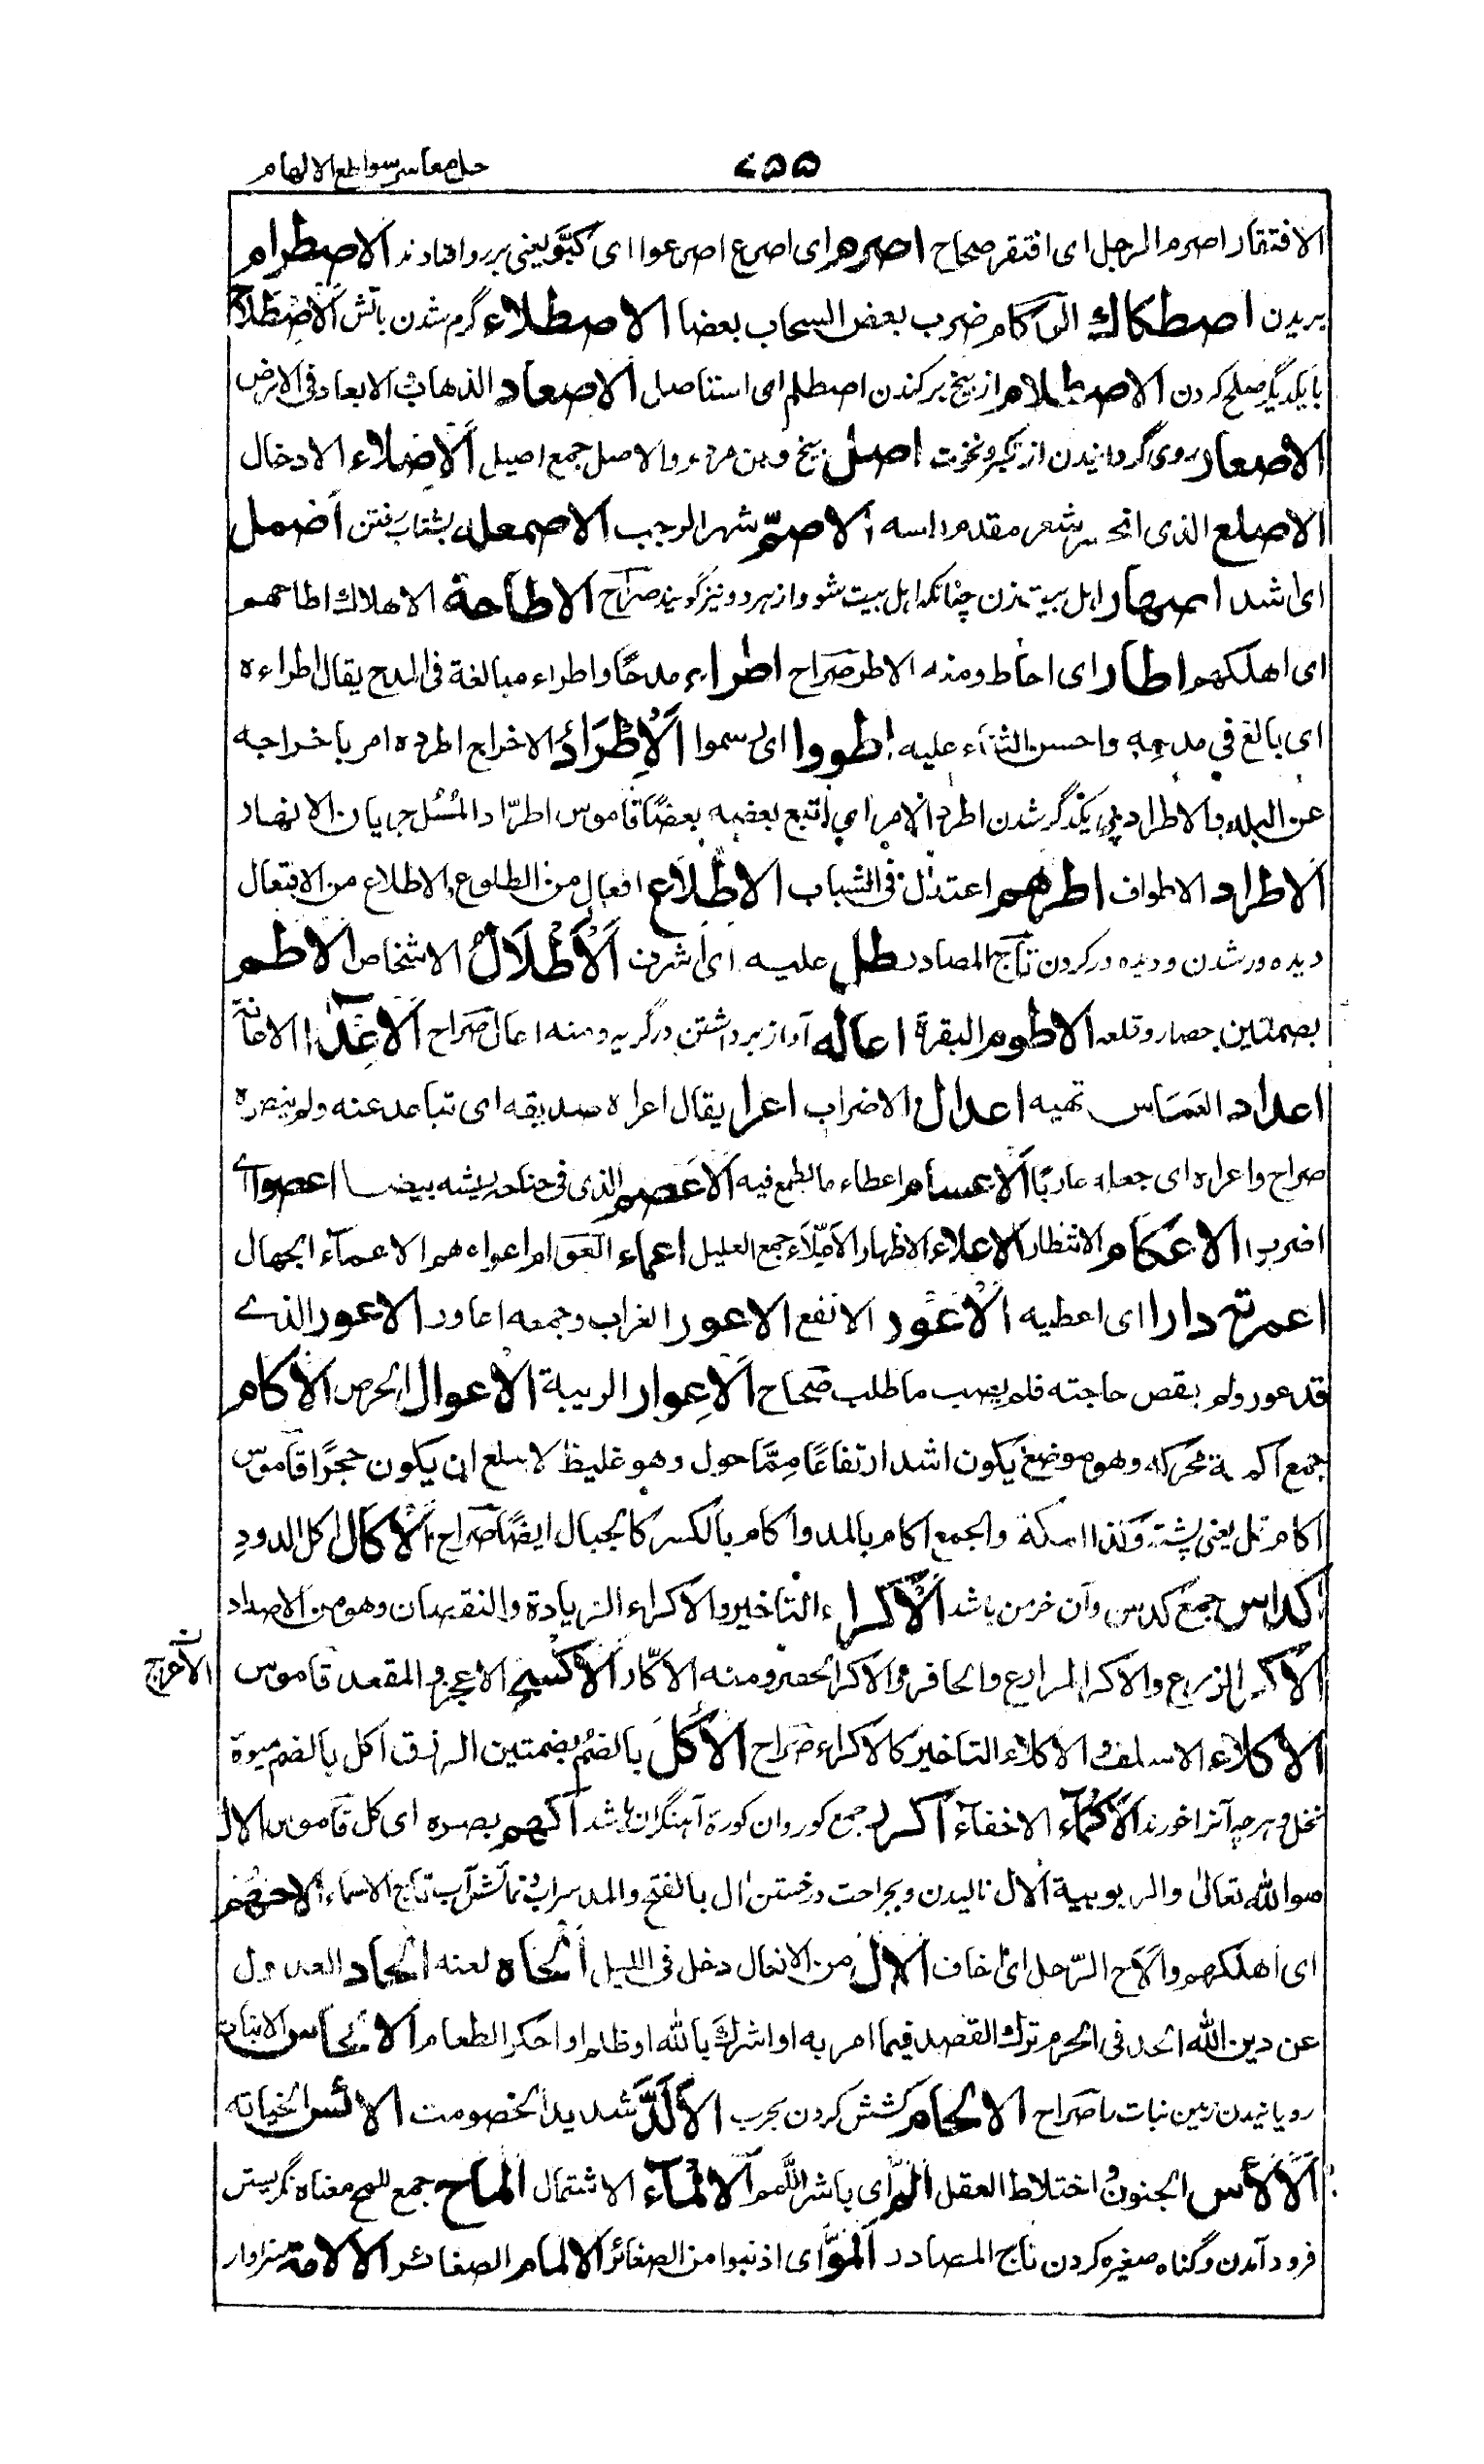 ۷۵۵
حل معا سر سواطع الالهام
الافتقار اصرم الرجل ای افتقر صحاح اصرهم ای اصرع اصرعوا ای کبّو یعنی بر رو افتادند الاصطرام
بریدن اصطکاك الرکام ضرب بعض السحاب بعضا الاصطلاء گرم شدن بآتش الاصطلاح
با یکدیگر صلح کردن الاصطلام از بیخ برکندن اصطلم ای استاصل الاصعاد الذهاب الابعاد فی الارض
الاصعار روی گردانیدن از تکبر ونخوت اصل بیخ و بن والاصل جمع اصیل الاصلاء الادخال
الاصلع الذی انحسر شعر مقدم راسه الاصمّ شهر الرجب الاصمعلال بشتاب رفتن اضمل
ای اشد اصهار اهل بیت زن چنانکه اهل بیت شو و از هر دو نیز گویند صراح الاطاحة الاهلاك اطاحهم
ای اهلکهم اطار ای احاط ومنه الاطر صراح اطراء مدحًا واطراء مبالغة فی المدح یقال اطراءه
ای بالغ فی مدحه واحسن الثناء علیه اطووا ای رسموا اَلْاِطْرَادُ الاخراج اطرده امر باخراجه
عن البلد والاطراد پی یکدگر شدن اطرد الامر ای اتبع بعضه بعضًا قاموس اطرّاد المُسُل جریان الانهار
الاطراد الاطواف اطرهم اعتدل فی الشباب الاطلاع افعال من الطلوع والاطلاع من الافتعال
دیده ور شدن و دیده ور کردن تاج المصادر طل علیه ای اشرف اَلْاَطْلَالُ الاشخاص الاطم
بضمتین حصار و قلعه الاطوم البقرة اعاله آواز برداشتن در گریه ومنه اعال صراح الاعداء الاعانة
اعداد العَمَاس تهیه اعدال الاضراب اعرا یقال اعراه صدیقه ای تباعد عنه ولم ینصره
صراح واعراه ای جعله عاریًا الاعسام اعطاء ما یطمع فیه الاعصم الذی فی جناحه ریشه بیضا اعصوا ای
اضربوا الاعکام الانتظار الاعلاء الاظهار الاعلّاء جمع العلیل اعماء العوام اعواءهم الاعمآء الجهال
اعمرته دارا ای اعطیه الاَعْوَد الانفع الاعور الغراب وجمعه اعاور الاعور الذے
قد عور ولم یقض حاجته فلم یصب ما طلب صحاح الاِعوار الریبة الاعوال الحرص الاکام
جمع اکمة محرکه وهو موضع یکون اشد ارتفاعًا مِمَّا حول وهو غلیظ لا یبلغ ان یکون حجرًا قاموس
اکام تل یعنی پشته وکذا اسکمة والجمع اکام بالمد واکام بالکسر کالجبال ایضًا صراح الاکال اکل الدود
اکداس جمع کدس وآن خرمن باشد اَلْاَکراء التاخیر والاکراء الزیادة والنقصان وهو من الاضداد
الاکر الزرع والاکر المزارع والحافر والاکر الحفر ومنه الاکّار الاکسح الاعجز والمقعد قاموس
الاعرج
الاکلاء الاسلف والاکلاء التاخیر کالاکراء صراح الاُکُل بالضم وبضمتین الرزق اکل بالضم میوهٔ
نخل و هر چه آنرا خورند الاکماء الاخفاء اکر جمع کور وان کورهٔ آهنگران باشد اکهم بصره ای کل قاموس الال
هوالله تعالیٰ والربوبیة الال نالیدن و بجراحت در خستن ال بالفتح والمد سراب و نمایش آب تاج الاسماء الاحهم
ای اهلکهم والاح الرّجل ای خاف الال من الانحال دخل فی اللیل الحاه لعنه الحاد العدول
عن دین الله الحد فی الحرم ترك القصد فیما امر به او اشرك بالله او ظلم او احکر الطعام الالحاس الانبات
رویانیدن زمین نبات را صراح الالحام کشش کردن بحرب الاَلَدّ شدید الخصومت الالس الخیانة
اَلاَلس الجنون و اختلاط العقل الم ای باشر اللَّمم الالماء الاشتمال الماح جمع للمح معناه نگریستن
فرود آمدن وگناه صغیره کردن تاج المصادر المّوا ای اذنبوا من الصغائر الالمام الصغائر الالامة سزاوار